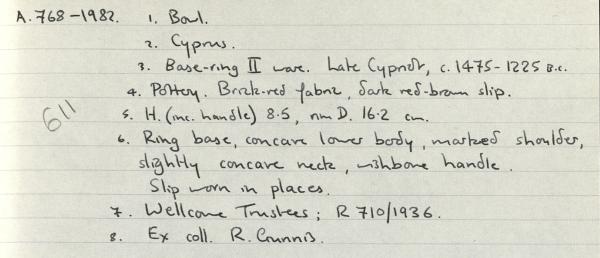 A.768-1982. 1. Bowl.
2. Cyprus.
3. Base-ring II ware. Late Cypriot, c. 1475-1225 B.C.
4. Pottery. Brick-red fabric, dark red-brown slip.
611
5. H. (inc. handle) 8.5, rim D. 16.2 cm.
6. Ring base, concave lower body, marked shoulder,
slightly concave neck, wishbone handle.
Slip worn in places.
7. Wellcome Trustees; R 710/1936.
8. Ex coll. R. Gunnis.